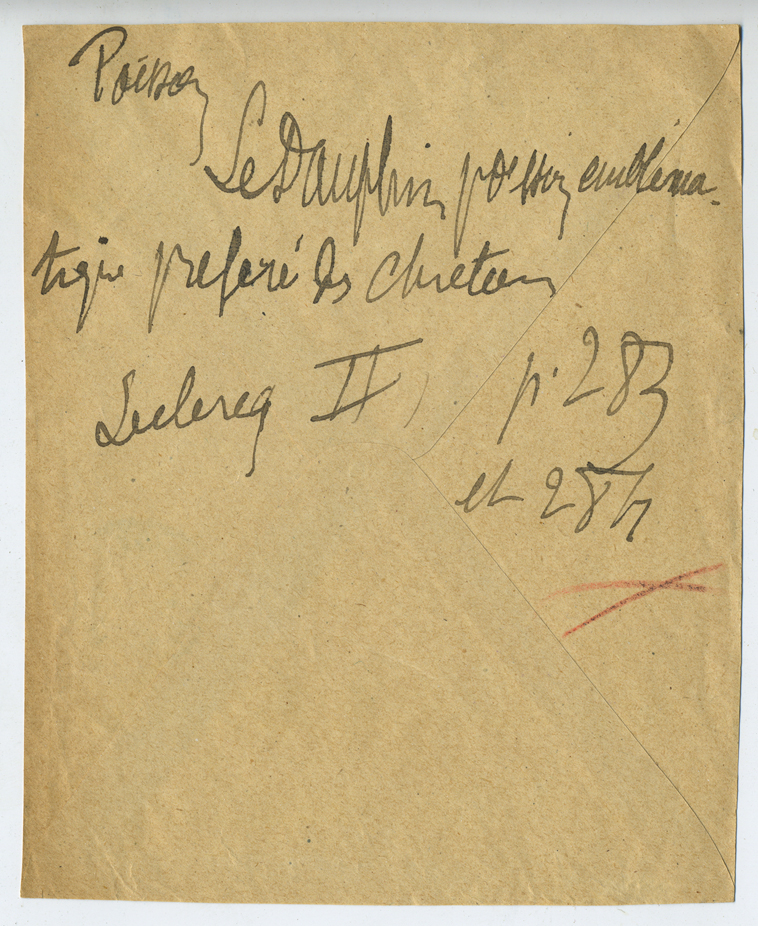 Poisson
Le Dauphin, poisson embléma-
tique préféré des chrétiens
Leclercq II, p. 283
et 284